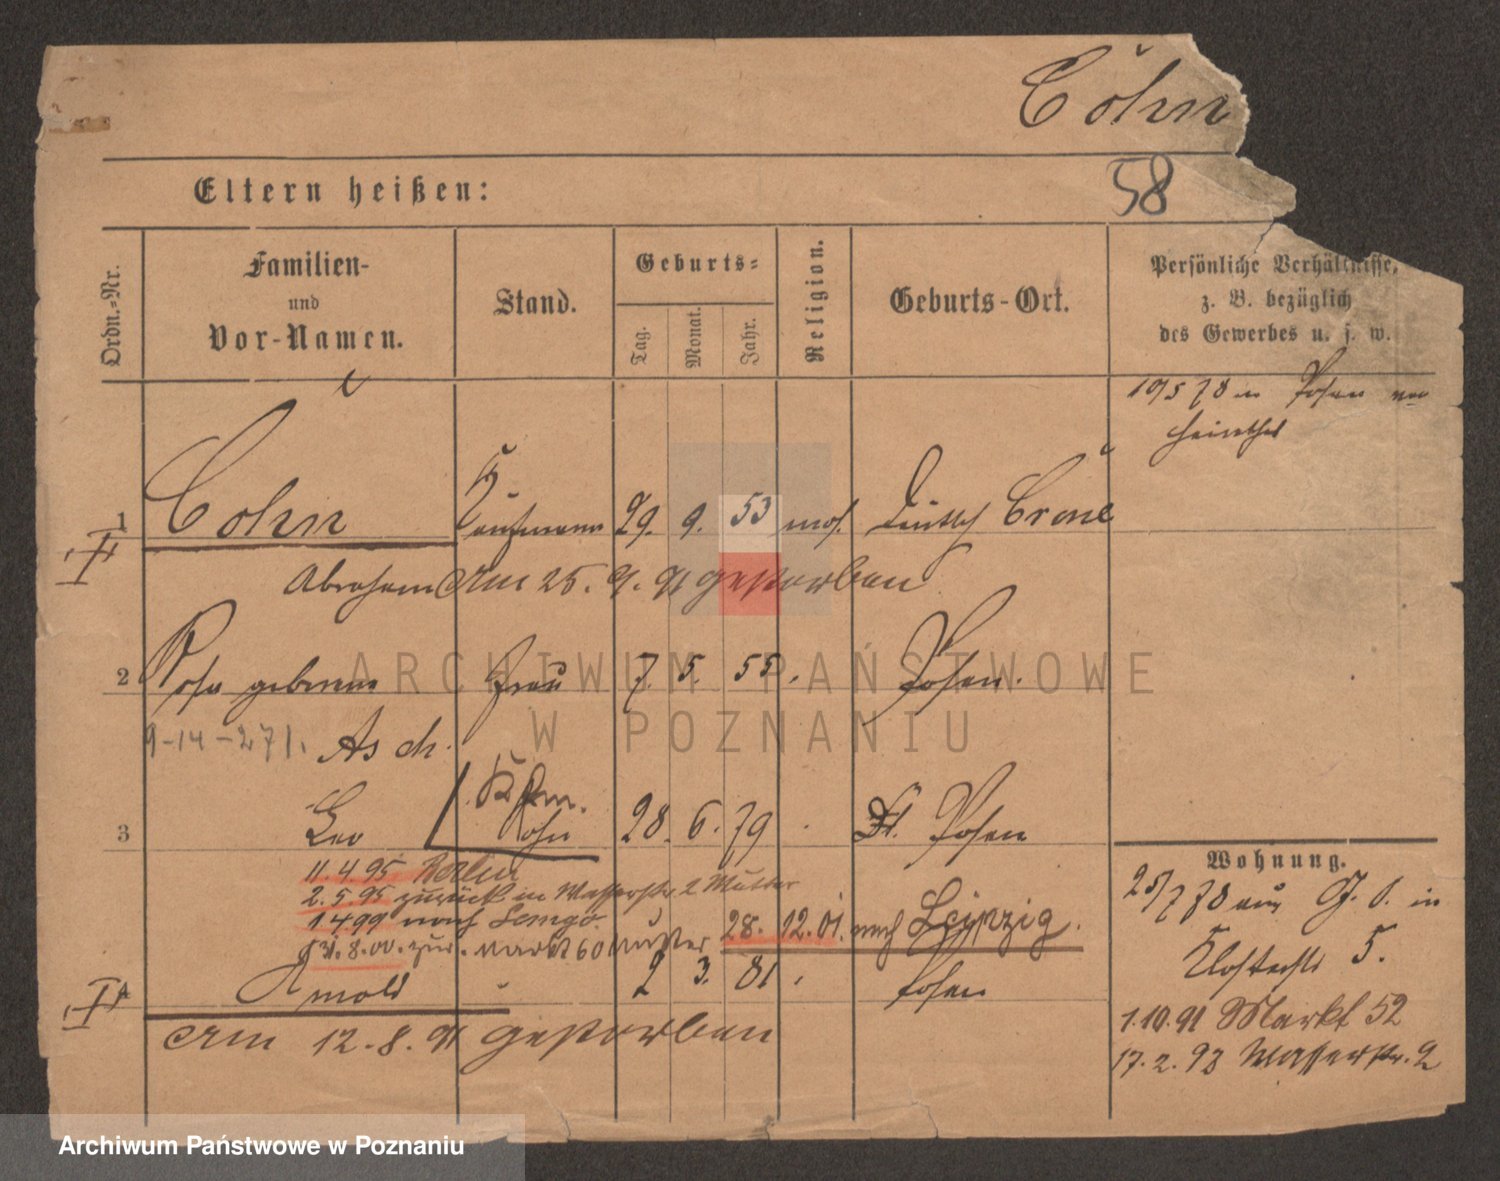 Cohn
58
Eltern heißen:
Ordn.-Nr.
Familien-
und
Vor-Namen.
Stand.
Geburts-
Tag.
Monat.
Jahr.
Religion.
Geburts-Ort.
Persönliche Verhältnisse,
z. B. bezüglich
des Gewerbes u. s. w.
10/5 78 in Posen ver
heirathet
1 Cohn Kaufmann 29. 9. 53 mos. Deutsch Crone
I
Abraham Am 25. 9. 91 gestorben
2 Rosa geborene Frau 7. 5. 55. Posen.
9-14-271. Asch.
3 Leo Kfm. Sohn 28. 6. 79 Posen
11.4.95 Berlin
2.5.95 zurück in Wasserstr 2 Mutter
1.4.99 nach Lemgo
31.8.00. zur. Markt 60 Mutter 28. 12. 01. nach Leipzig.
4 Arnold 2 3. 81. Posen
I
Am 12.8.91 gestorben
Wohnung.
25/7 78 aus in
Klosterstr 5.
1.10.91 Markt 52
17.2.93 Wasserstr. 2
ARCHIWUM PAŃSTWOWE
W POZNANIU
Archiwum Państwowe w Poznaniu